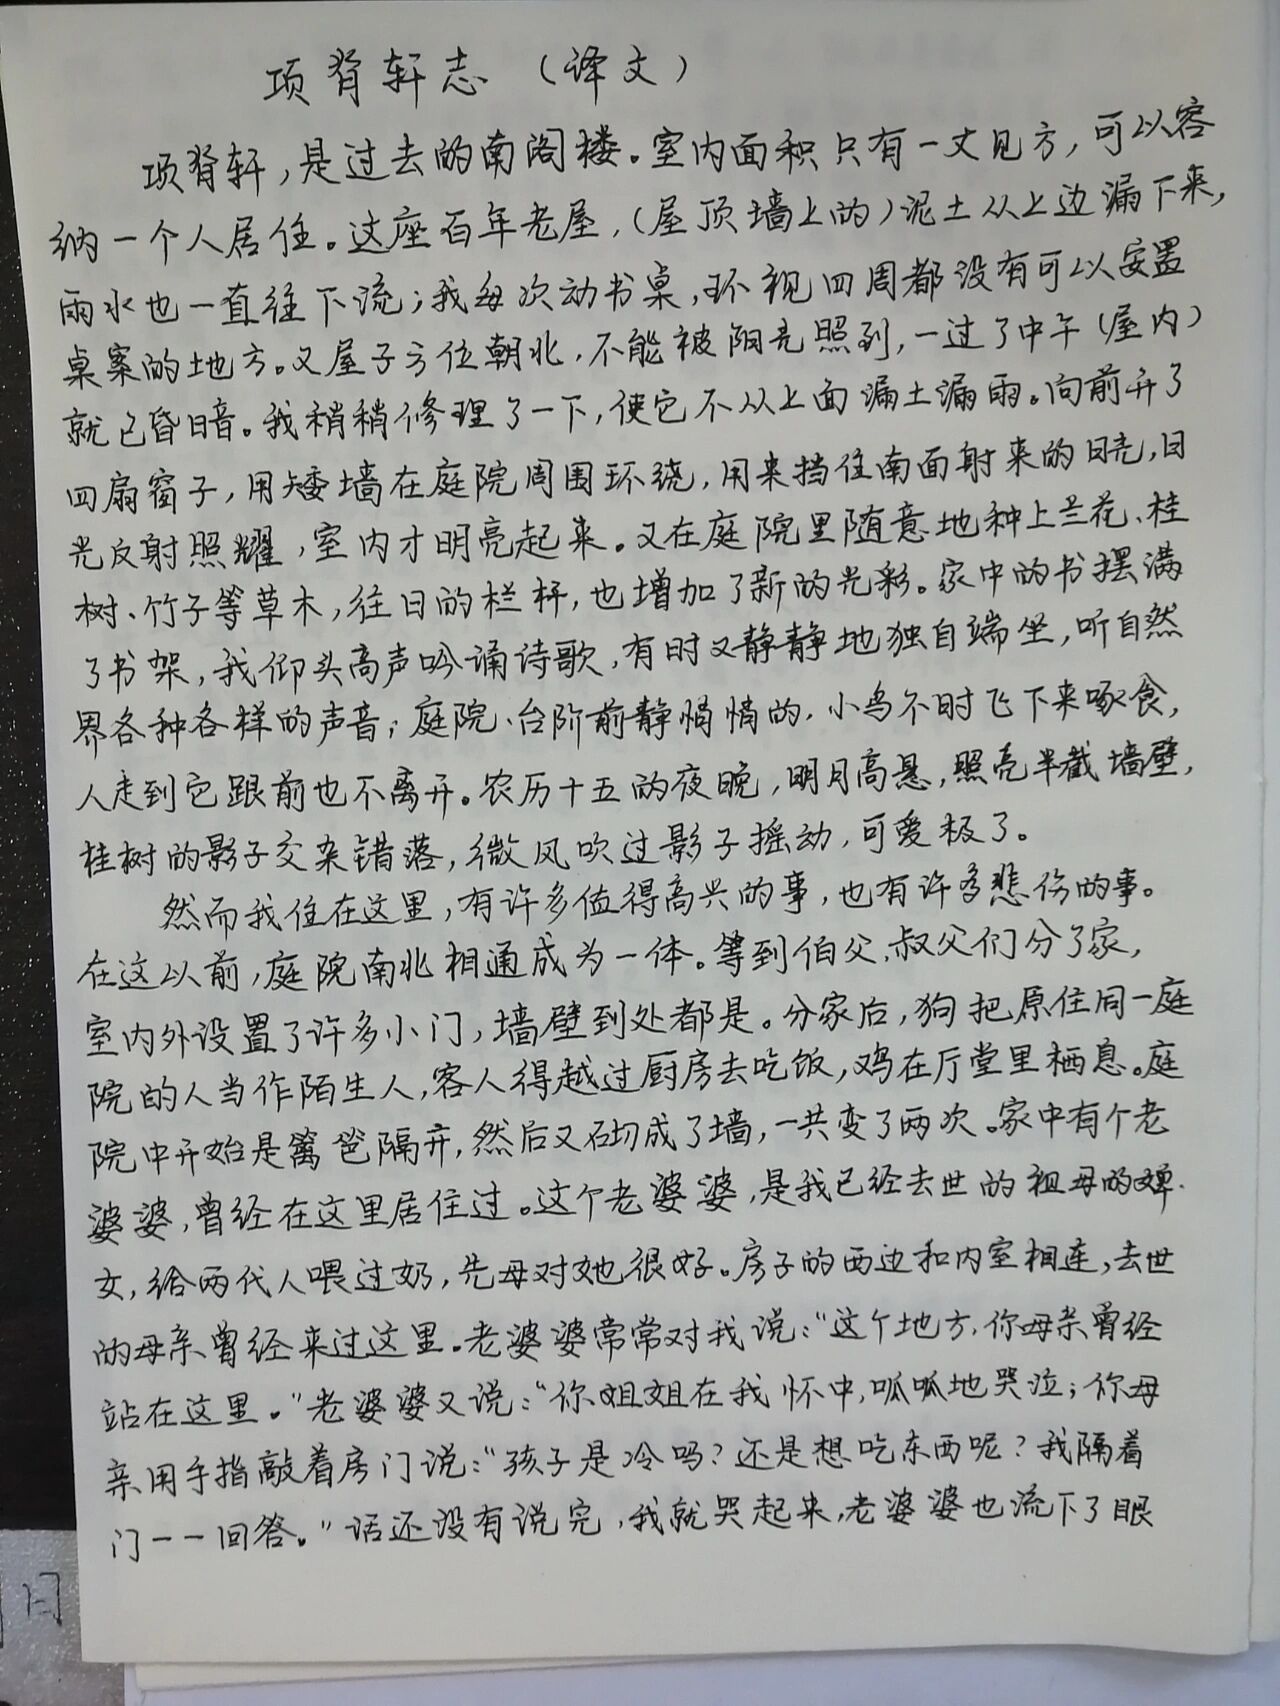 项脊轩志（译文）
项脊轩，是过去的南阁楼。室内面积只有一丈见方，可以容
纳一个人居住。这座百年老屋，（屋顶墙上的）泥土从上边漏下来，
雨水也一直往下流；我每次动书桌，环视四周都没有可以安置
桌案的地方。又屋子方位朝北，不能被阳光照到，一过了中午（屋内）
就已昏暗。我稍稍修理了一下，使它不从上面漏土漏雨。向前开了
四扇窗子，用矮墙在庭院周围环绕，用来挡住南面射来的日光，日
光反射照耀，室内才明亮起来。又在庭院里随意地种上兰花、桂
树、竹子等草木，往日的栏杆，也增加了新的光彩。家中的书摆满
了书架，我仰头高声吟诵诗歌，有时又静静地独自端坐，听自然
界各种各样的声音；庭院、台阶前静悄悄的，小鸟不时飞下来啄食，
人走到它跟前也不离开。农历十五的夜晚，明月高悬，照亮半截墙壁，
桂树的影子交杂错落，微风吹过影子摇动，可爱极了。
然而我住在这里，有许多值得高兴的事，也有许多悲伤的事。
在这以前，庭院南北相通成为一体。等到伯父、叔父们分了家，
室内外设置了许多小门，墙壁到处都是。分家后，狗把原住同一庭
院的人当作陌生人，客人得越过厨房去吃饭，鸡在厅堂里栖息。庭
院中开始是篱笆隔开，然后又砌成了墙，一共变了两次。家中有个老
婆婆，曾经在这里居住过。这个老婆婆，是我已经去世的祖母的婢
女，给两代人喂过奶，先母对她很好。房子的西边和内室相连，去世
的母亲曾经来过这里。老婆婆常常对我说：“这个地方，你母亲曾经
站在这里。”老婆婆又说：“你姐姐在我怀中，呱呱地哭泣；你母
亲用手指敲着房门说：“孩子是冷吗？还是想吃东西呢？我隔着
门一一回答。”话还没有说完，我就哭起来，老婆婆也流下了眼